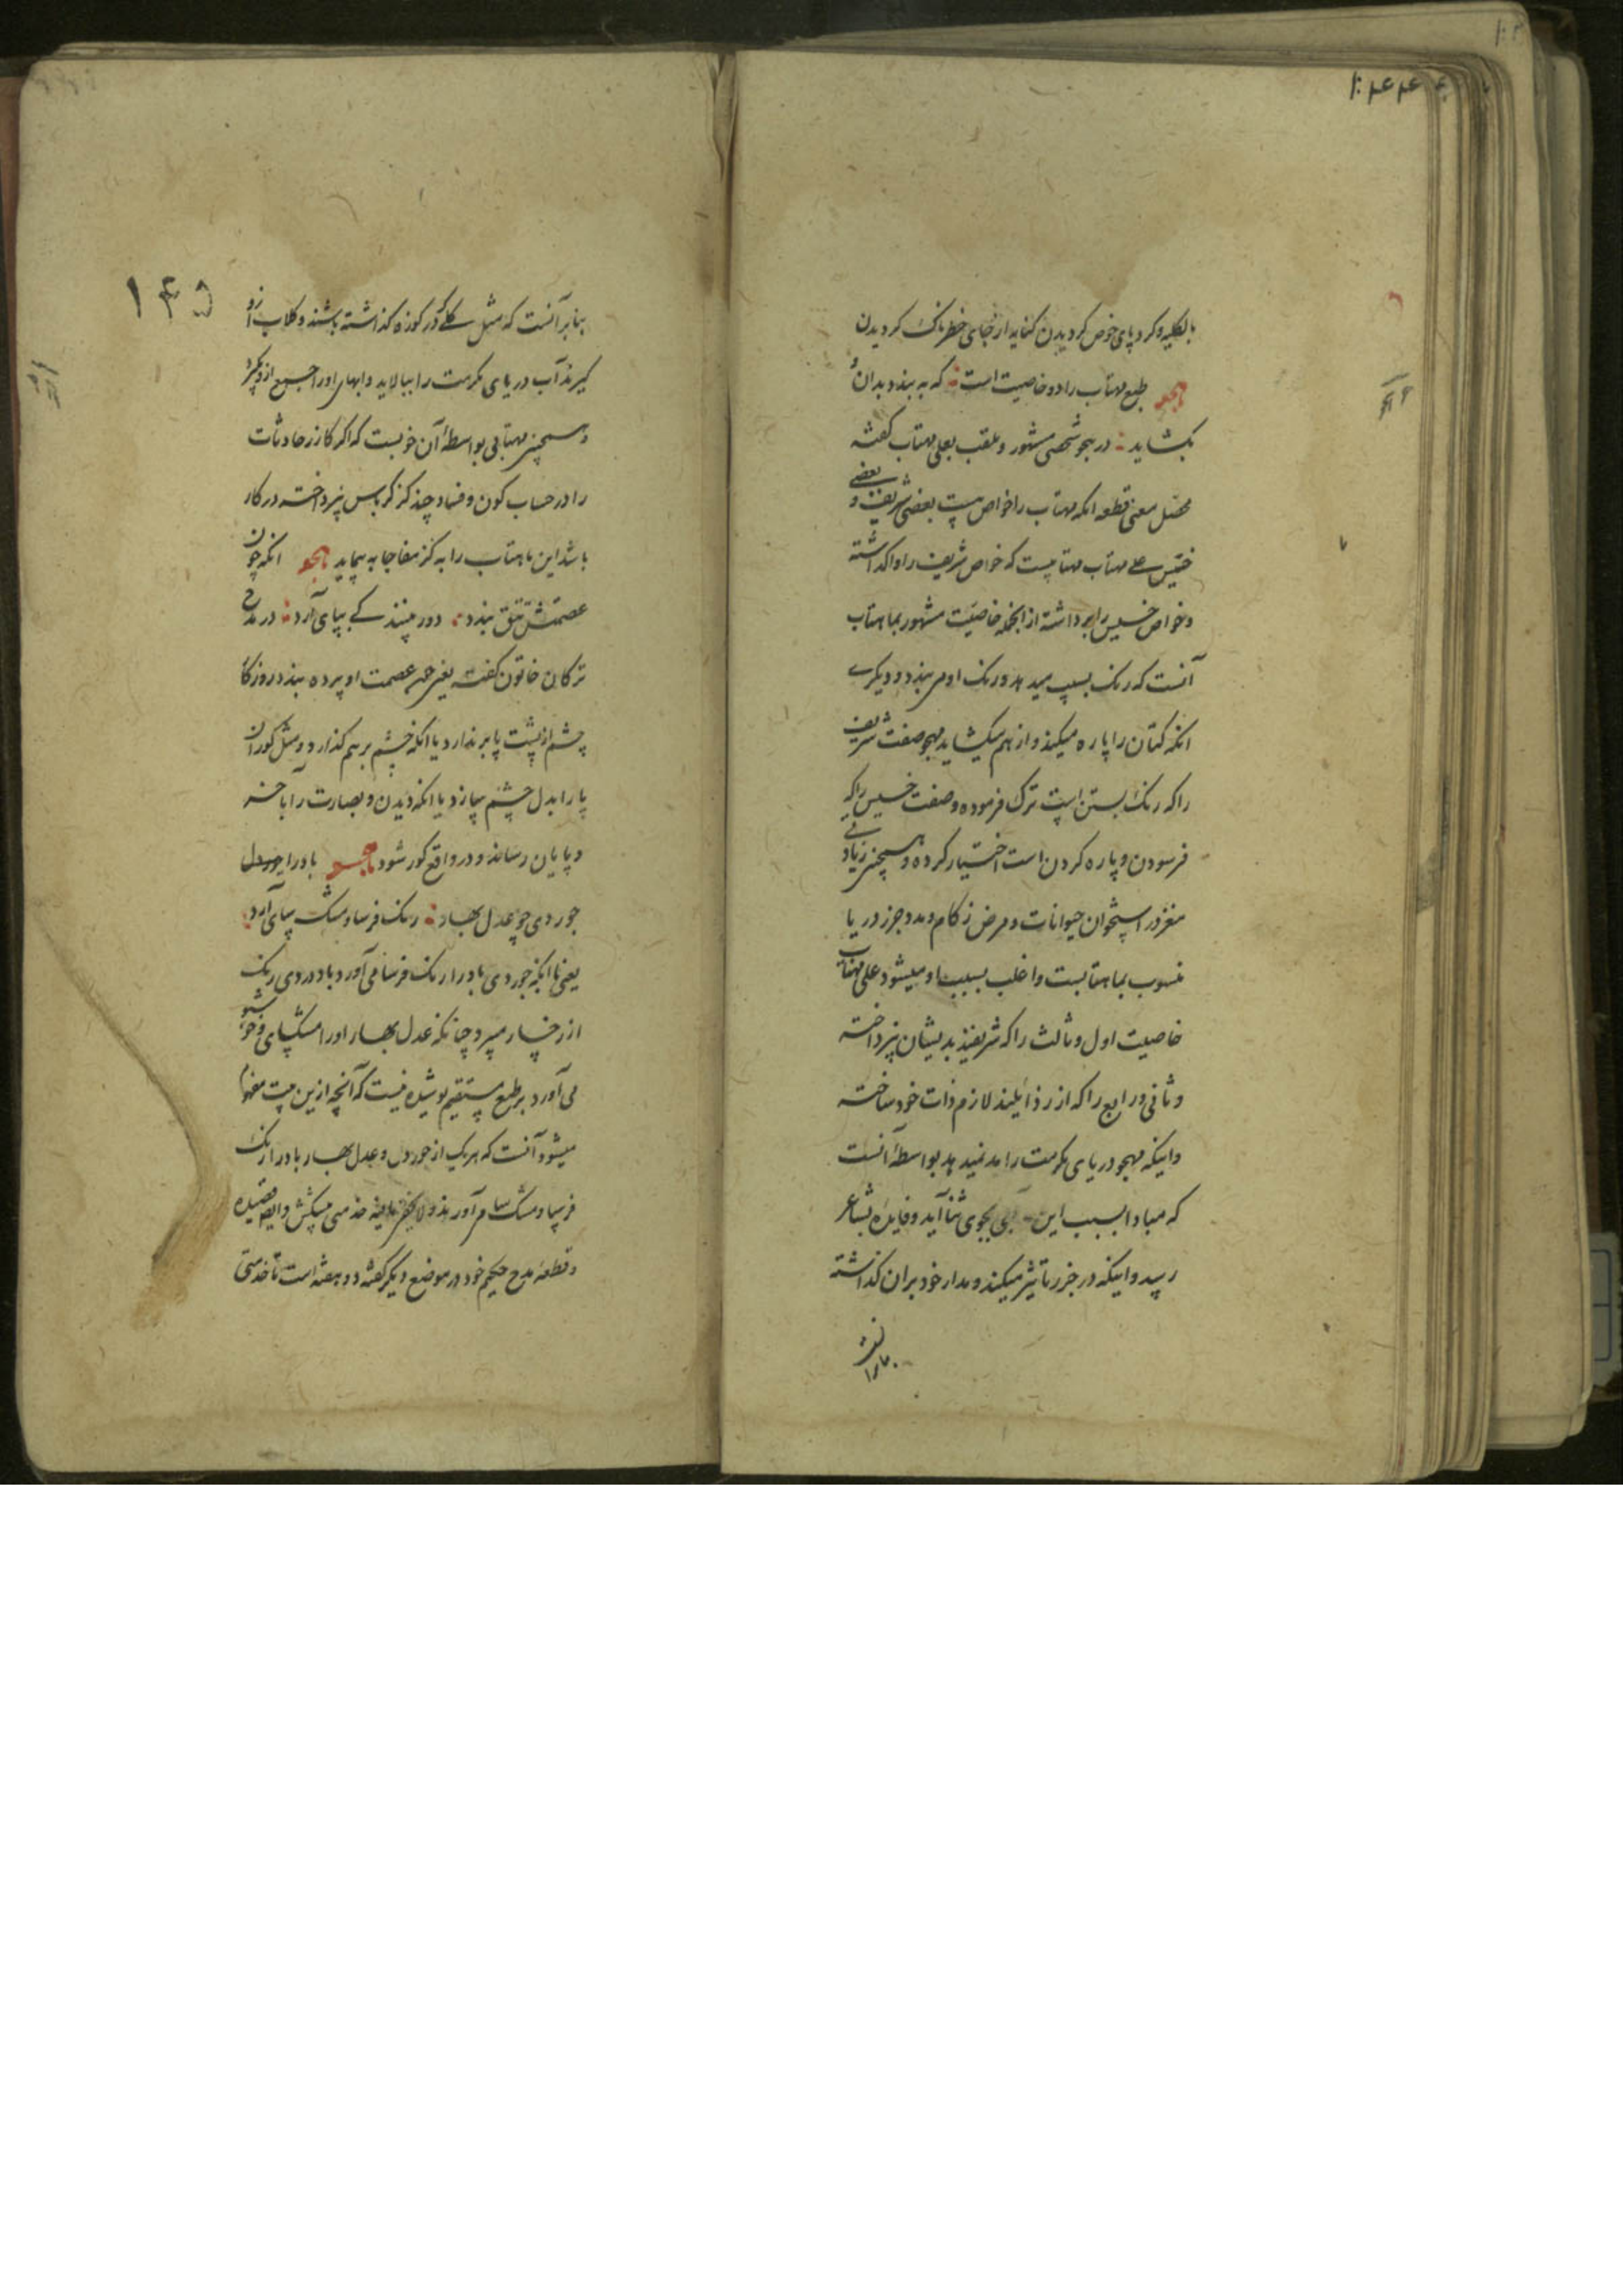 بالکلیه وکرد پای خوض کردیدن کنایه از جای خطرناک کردیدن
طبع مهتاب را دو خاصیت است که به بندد بدان و
بکشاید در هجو شخصی مشهور و ملقب بعلی مهتاب کفته
محصل معنی قطعه انکه مهتاب را خواص هست بعضی شریف و بعضی
خسیس علی مهتاب مهتابیست که خواص شریف را واکذاشته
وخواص خسیس را برداشته از انجمله خاصیت مشهور بماهتاب
آنست که رنک بسیب میدهد ورنک او می بندد و دیکری
انکه کتان را پاره میکند و از هم میکشاید مهجو صفت شریف
را که رنک بستن است ترک فرموده وصفت خسیس را که
فرسودن و پاره کردن است اختیار کرده و همچنین زیادتی
مغز در استخوان حیوانات و مرض زکام و مد وجزر دریا
منسوب بماهتابست واغلب بسبب او میشود علی مهتاب
خاصیت اول و ثالث را که شریفند بدیشان نپرداخته
وثانی و رابع را که از رذائلند لازم ذات خود ساخته
واینکه مهجو دریای مکرمت را مد نمیدهد بواسطهٔ آنست
که مبادا بسبب این بجوی ثنا آید وفایده بشاعر
رسد واینکه در جزر تاثیر میکند و مدار خود بران کذاشته
۱۴۵
بنابر آنست که مثل کلی که در کوزه کذاشته باشند وکلاب ازو
کیرند آب دریای مکرمت را ببالاید وابهای اورا جمیع ازو بکیرد
وهمچنین مهتابی بواسطهٔ آن خوبست که اکر کازر حادثات
را در حساب کون وفساد چند کز کرباس نپرداخته در کار
باشد این ماهتاب را به کز مفاجا به پیماید انکه چون
عصمتش تتق بندد دور بینند کی بپای آرد در مدح
ترکان خاتون کفته یعنی چون عصمت او پرده بندد روزکار
چشم از پشت پا بر ندارد یا انکه چشم بر هم کذارد ومثل کوران
پا را بدل چشم سازد یا انکه دیدن و بصارت را باخر
و پایان رساند و در واقع کور شود باد را جور دل
جور دی چو عدل بهار رنک فرسا و مشک سای آرد
یعنی تا انکه جور دی باد را رنک فرسا می آورد باد در دی رنک
از رخسار میبرد چنانکه عدل بهار اورا مشکسای و خوشبو
می آورد بر طبع مستقیم پوشیده نیست که آنچه ازین بیت مفهوم
میشود آنست که هر یک از جور دی و عدل بهار باد را رنک
فرسا و مشک سا می آورند
وقطعهٔ مدح حکیم خود در موضع دیکر کفته دو هفته است تا خدمتی